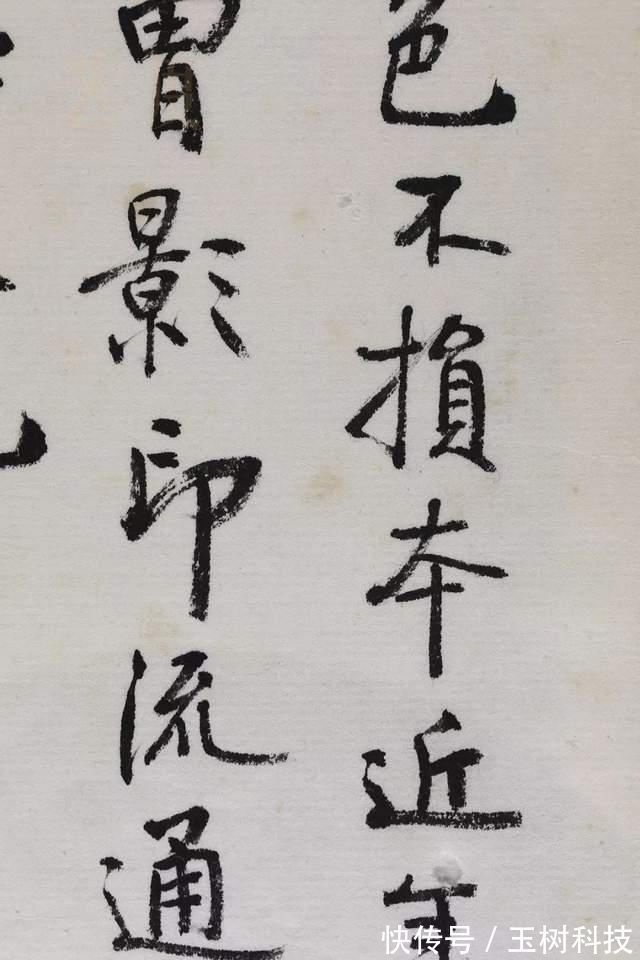 色不損本近年
胄影印流通
快传号/玉树科技